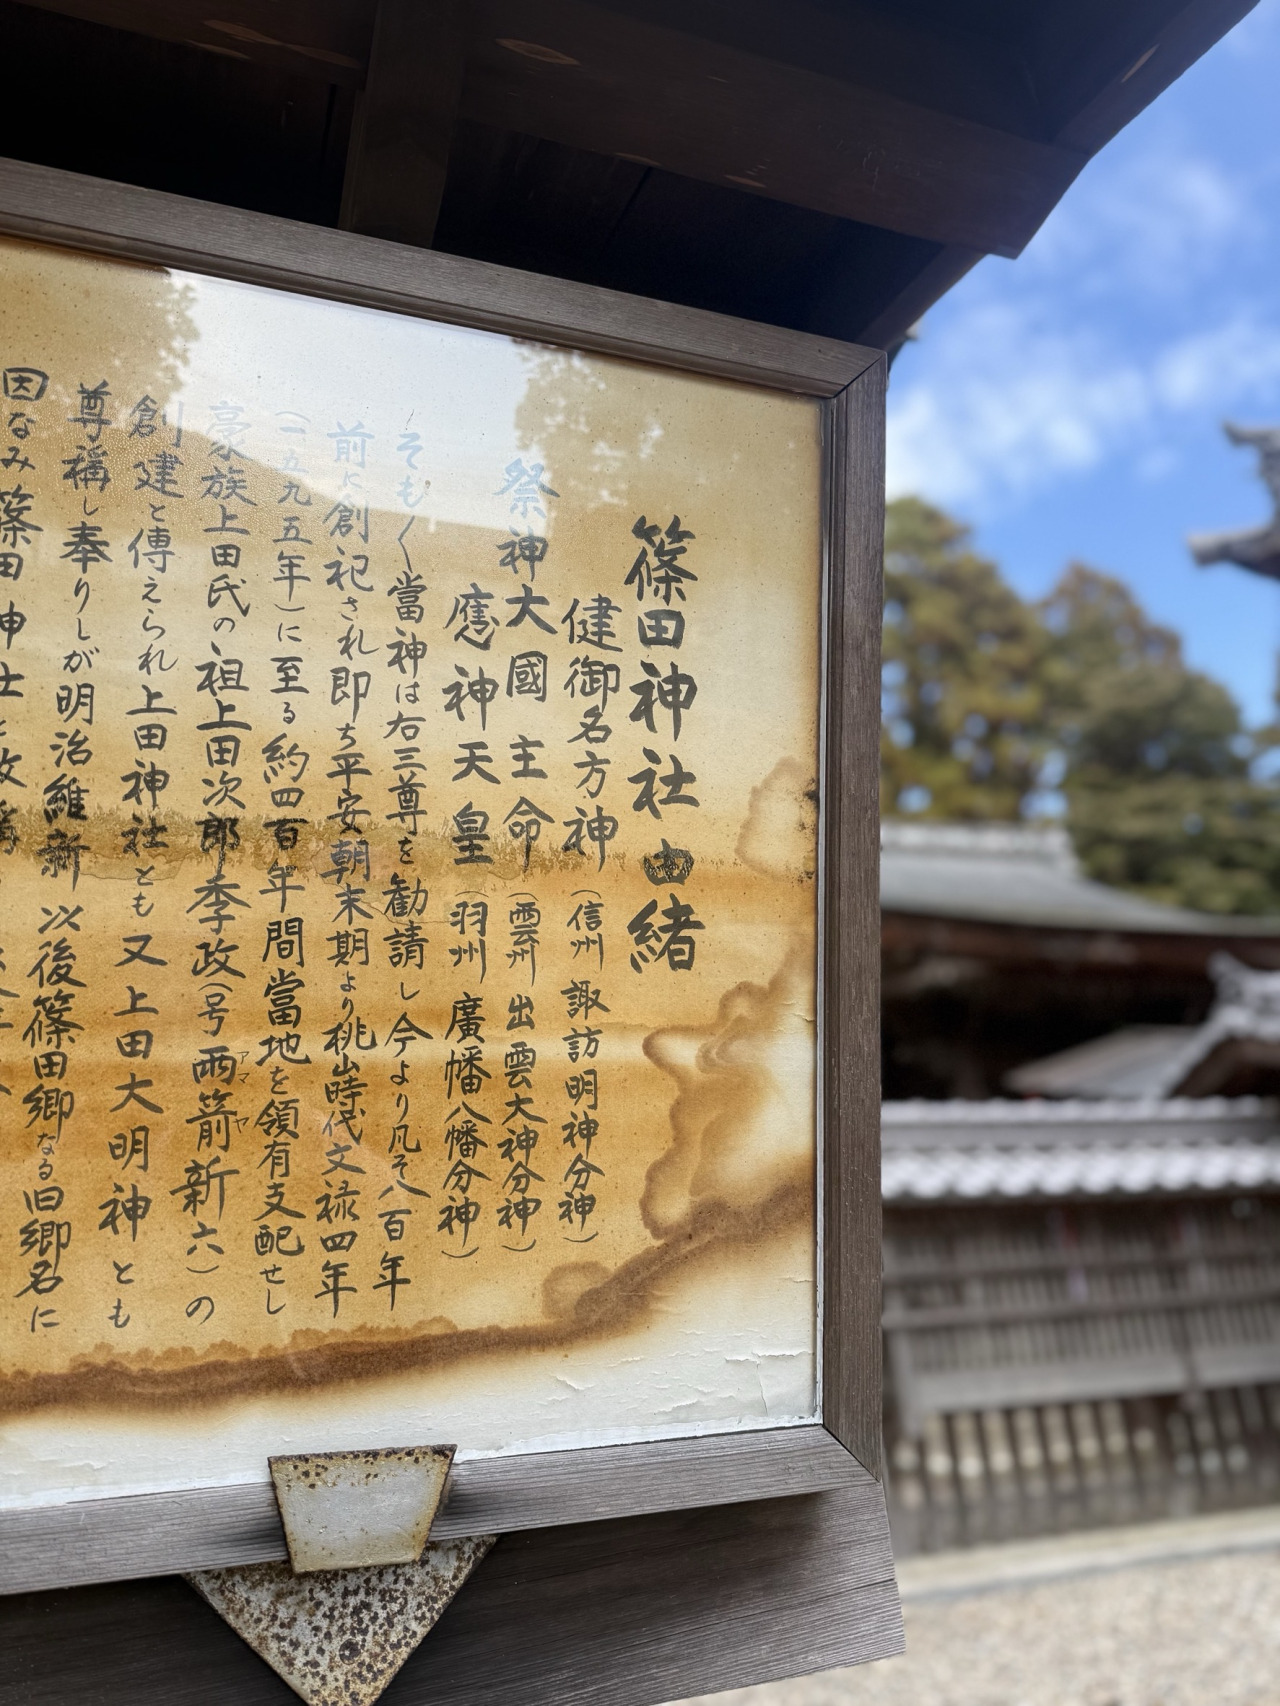 篠田神社由緒
健御名方神（信州 諏訪明神分神）
祭神 大國主命（雲州 出雲大神分神）
應神天皇（羽州 廣幡八幡分神）
そも〱當神は右三尊を勧請し今より凡そ八百年
前に創祀され即ち平安朝末期より桃山時代文禄四年
（一五九五年）に至る約四百年間當地を領有支配せし
豪族上田氏の祖上田次郎季政（号雨箭新六）の
アマヤ
創建と傳えられ上田神社とも又上田大明神とも
尊称し奉りしが明治維新以後篠田郷なる旧郷名に
因なみ篠田神社と改称